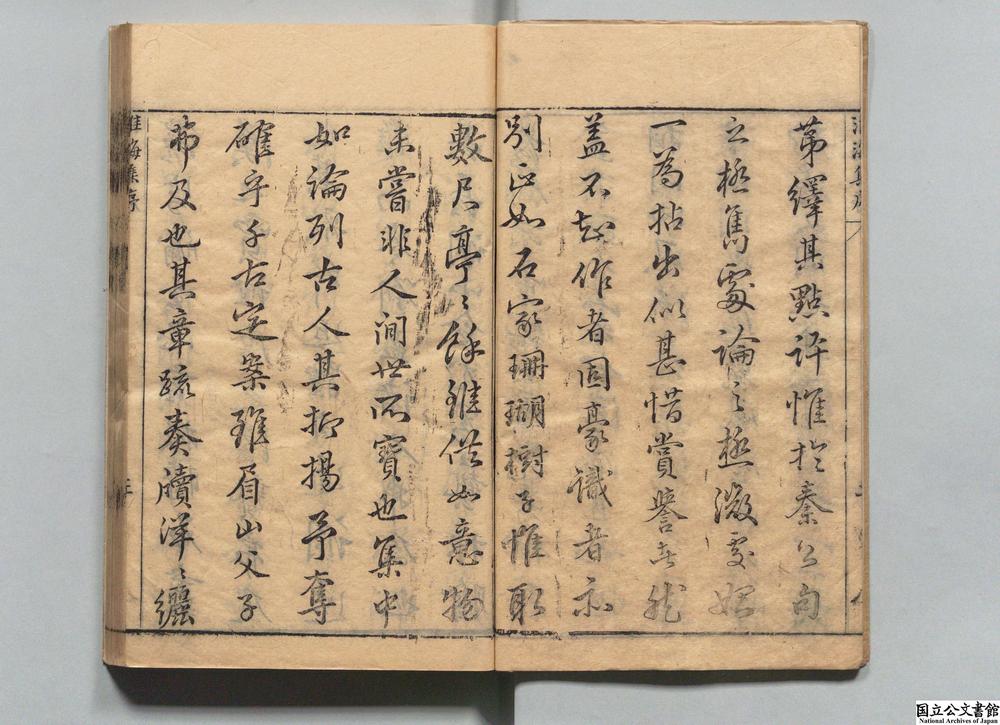 淮海集序
第繹其點評惟於秦公句
之極雋處論之極微處始
一為拈出似甚惜賞譽者然
蓋不知作者固豪識者亦
別正如石家珊瑚樹子惟取
數尺亭〻餘雖供如意物
未嘗非人間世所寶也集中
如論列古人其抑揚予奪
確乎千古定案雖眉山父子
弗及也其章疏奏牘洋〻纚
淮海集序
三
国立公文書館
National Archives of Japan